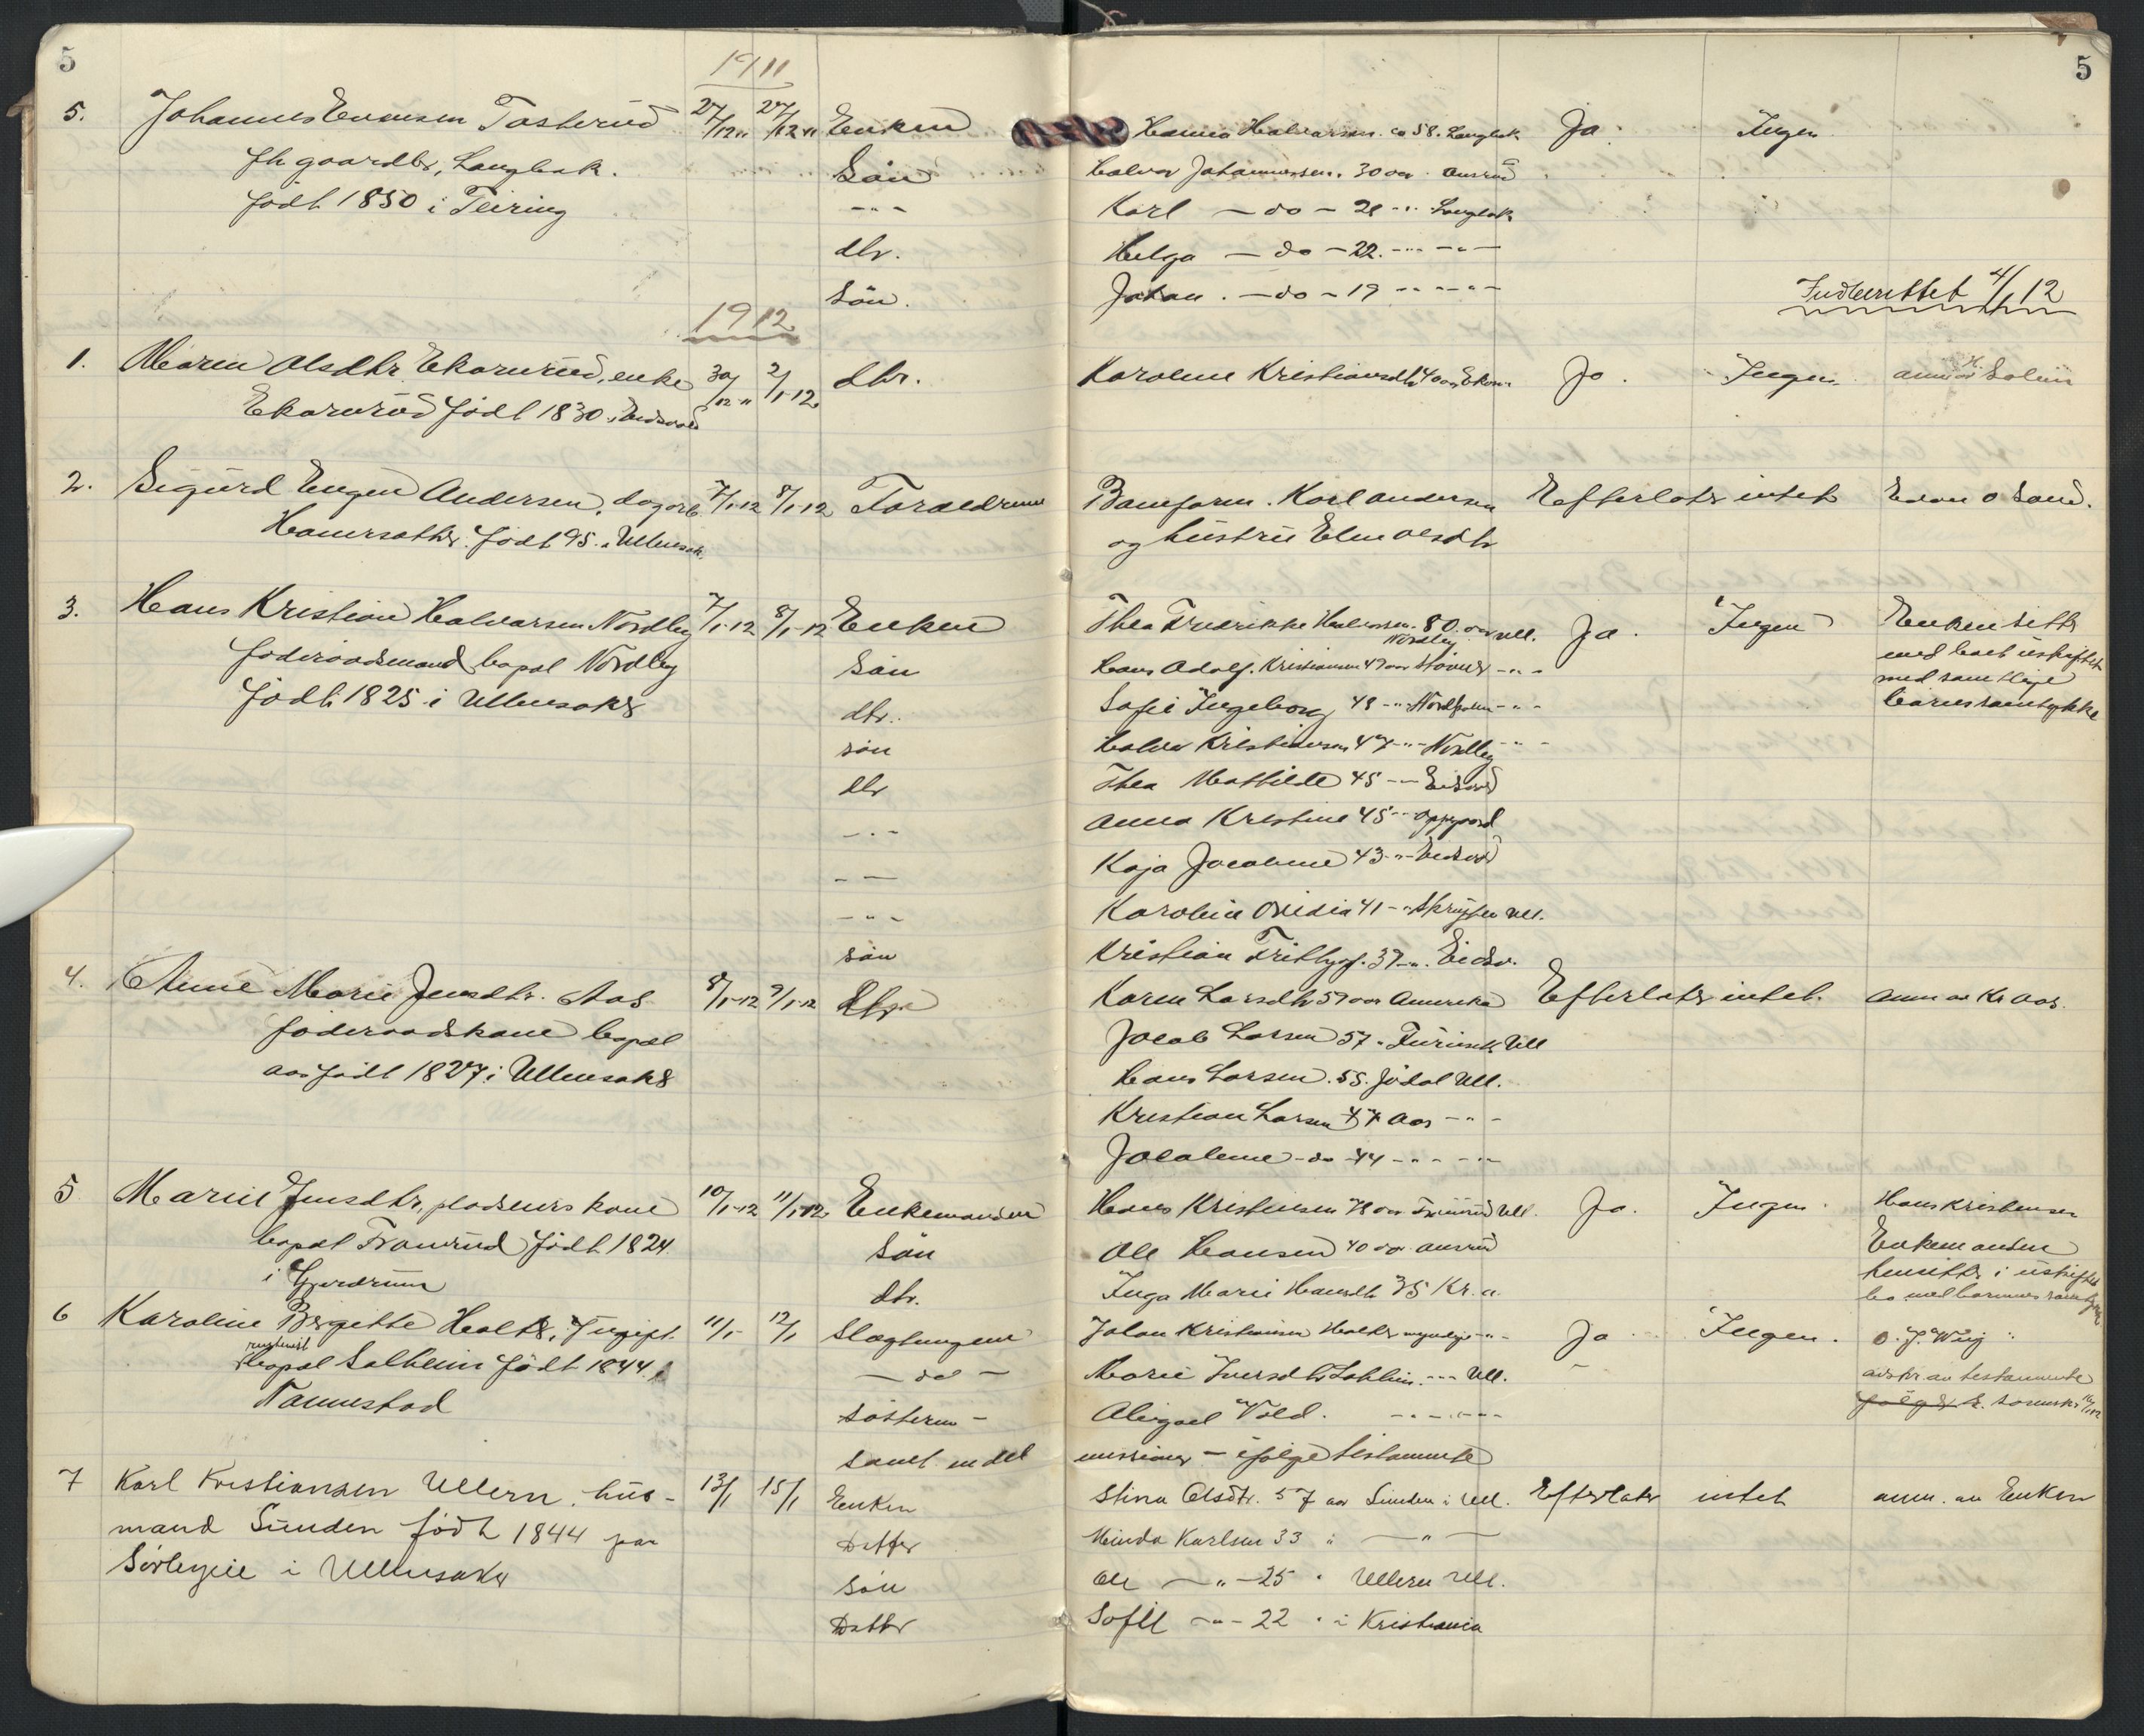 5
5
1911
5. Johannes Evensen Tosterud 27/12 11 27/12 11 Enken Halvorsen. ca 58. Langbak Ja. Ingen
fh gaardbr, Langbak. Sön Halvor Johannessen. 30 aar
födt 1850 i Feiring -"- Karl - do - 28 -"- Langbak
dtr. Helga - do - 22 -"- -"-
Sön. Johan. - do - 19 -"- -"-
Indberettet 4/1 12
1912
1. Maren Olsdtr. Ekornrud, enke 30/12 11 2/1-12 dtr. Karoline Kristiansdtr 40 aar Ekorn. Ja. Ingen
Ekornrud födt 1830 i Eidsvold
2. Sigurd Eugen Andersen, dagarb. 7/1-12 8/1-12 Foraeldrene Baneform. Karl Andersen Efterlater intet
födt 95. i Ullensak. og hustru Olsdtr
3. Hans Kristian Halvorsen Nordby 7/1-12 8/1-12 Enken Thea Fredrikke Halvorsen 80 aar Ull. Ja. Ingen Enken sitter
Nordby
föderaadsmand bopæl Nordby Sön Hans Adolf Kristiansen 49 aar -"- med boet uskiftet
födt 1825 i Ullensaker dtr. Sofie Ingeborg 48 -"- -"- med samtlige
sön Halvor Kristiansen 47 -"- Nordby -"- barnes samtykke
dtr Thea Mathilde 45 -"- Eidsvold
-"- Anna Kristine 45 -"- Oppgaard
-"- Kaja Jacobine 43 -"- Eidsvold
-"- Karoline Ovidia 41 -"- Ull.
sön Kristian Frithjof. 37 -"- Eidsv.
4. Anne Marie Jensdtr. Aas 8/1-12 9/1-12 Dtr Karen Larsdtr 59 aar Amerika Efterlater intet. anm. av Kr Aas.
föderaadskone bopæl Jacob Larsen 57 -"- Ull
Aas födt 1827 i Ullensaker Hans Larsen. 55. Jödal Ull.
Kristian Larsen 47 Aas -"-
Jacobine - do - 44 -"- -"-
5 Marie Jensdtr, pladseiers kone 10/1-12 11/1-12 Enkemanden Hans Kristensen 78 aar Ull. Ja. Ingen. Hans Kristensen
bopæl födt 1824 Sön Ole Hansen 40 aar Enkemanden
i Gjerdrum dtr. Inga Marie Hansdtr 35 Kr.a. hensitter i uskiftet
bo med barnenes samtykke
6 Karoline Birgitte Holter, Ingift. 11/1- 12/1 Slagtningene Johan Kristiansen Holter myndige -"- Ja Ingen. O. J. Wiig
bopæl Solheim födt 1844 i - do - Marie Iversdtr -"- Ull. av testamente
Nannestad Sösteren - Abigael Vold. -"- -"-
samt en del missioner - ifölge testamente
7 Karl Kristiansen Ullern, hus- 13/1 15/1 Enken Stina Olsdtr. 57 aar Sunden i Ull. Efterlater intet anm. av Enken
mand Sunden födt 1844 paa Datter Minda Karlsen 33 " -"-
Sörbyeie i Ullensaker Sön Ole -"- 25 " Ullern Ull.
Datter Sofie -"- 22 " i Kristiania